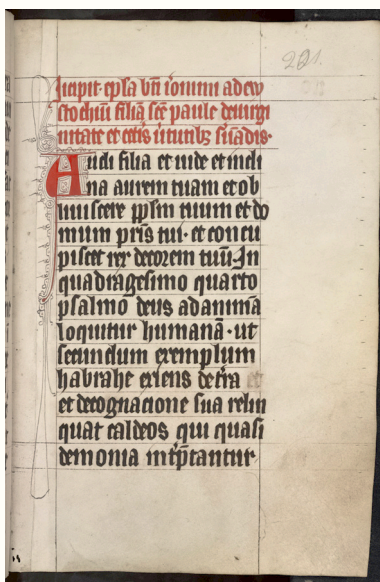 221.
Incipit epl̄a btī ieronimi ad eu
stochiū filiā scē paule de uirgi
nitate et cetis uirtutibꝫ suādis·
Audi filia et uide et incli
na aurem tuam et ob
liuiscere pplm̄ tuum et do
mum pr̄is tui· et concu
piscet rex decorem tuū· In
quadragesimo quarto
psalmo deus ad animā
loquitur humanā· ut
secundum exemplum
habrahe exiens de t̄ra
et de cognacione sua relin
quat caldeos qui quasi
demonia int̄p̄tantur